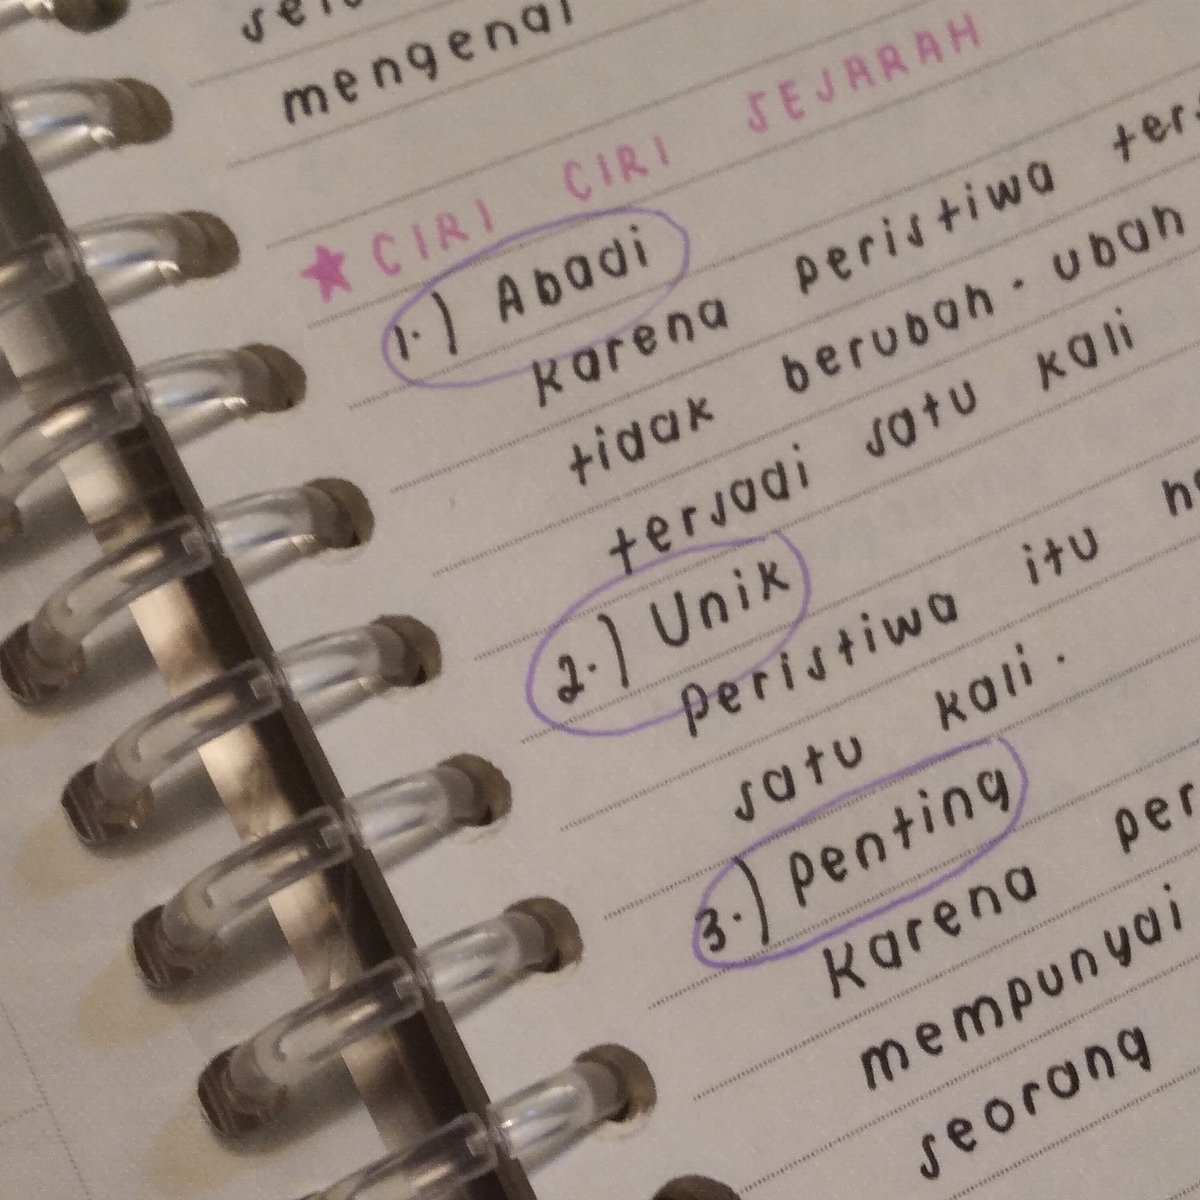 mengenai
★ CIRI CIRI SEJARAH
1.) Abadi
Karena peristiwa
tidak berubah-ubah
terjadi satu kali
2.) Unik
peristiwa itu
satu kali.
3.) penting
Karena
mempunyai
seorang